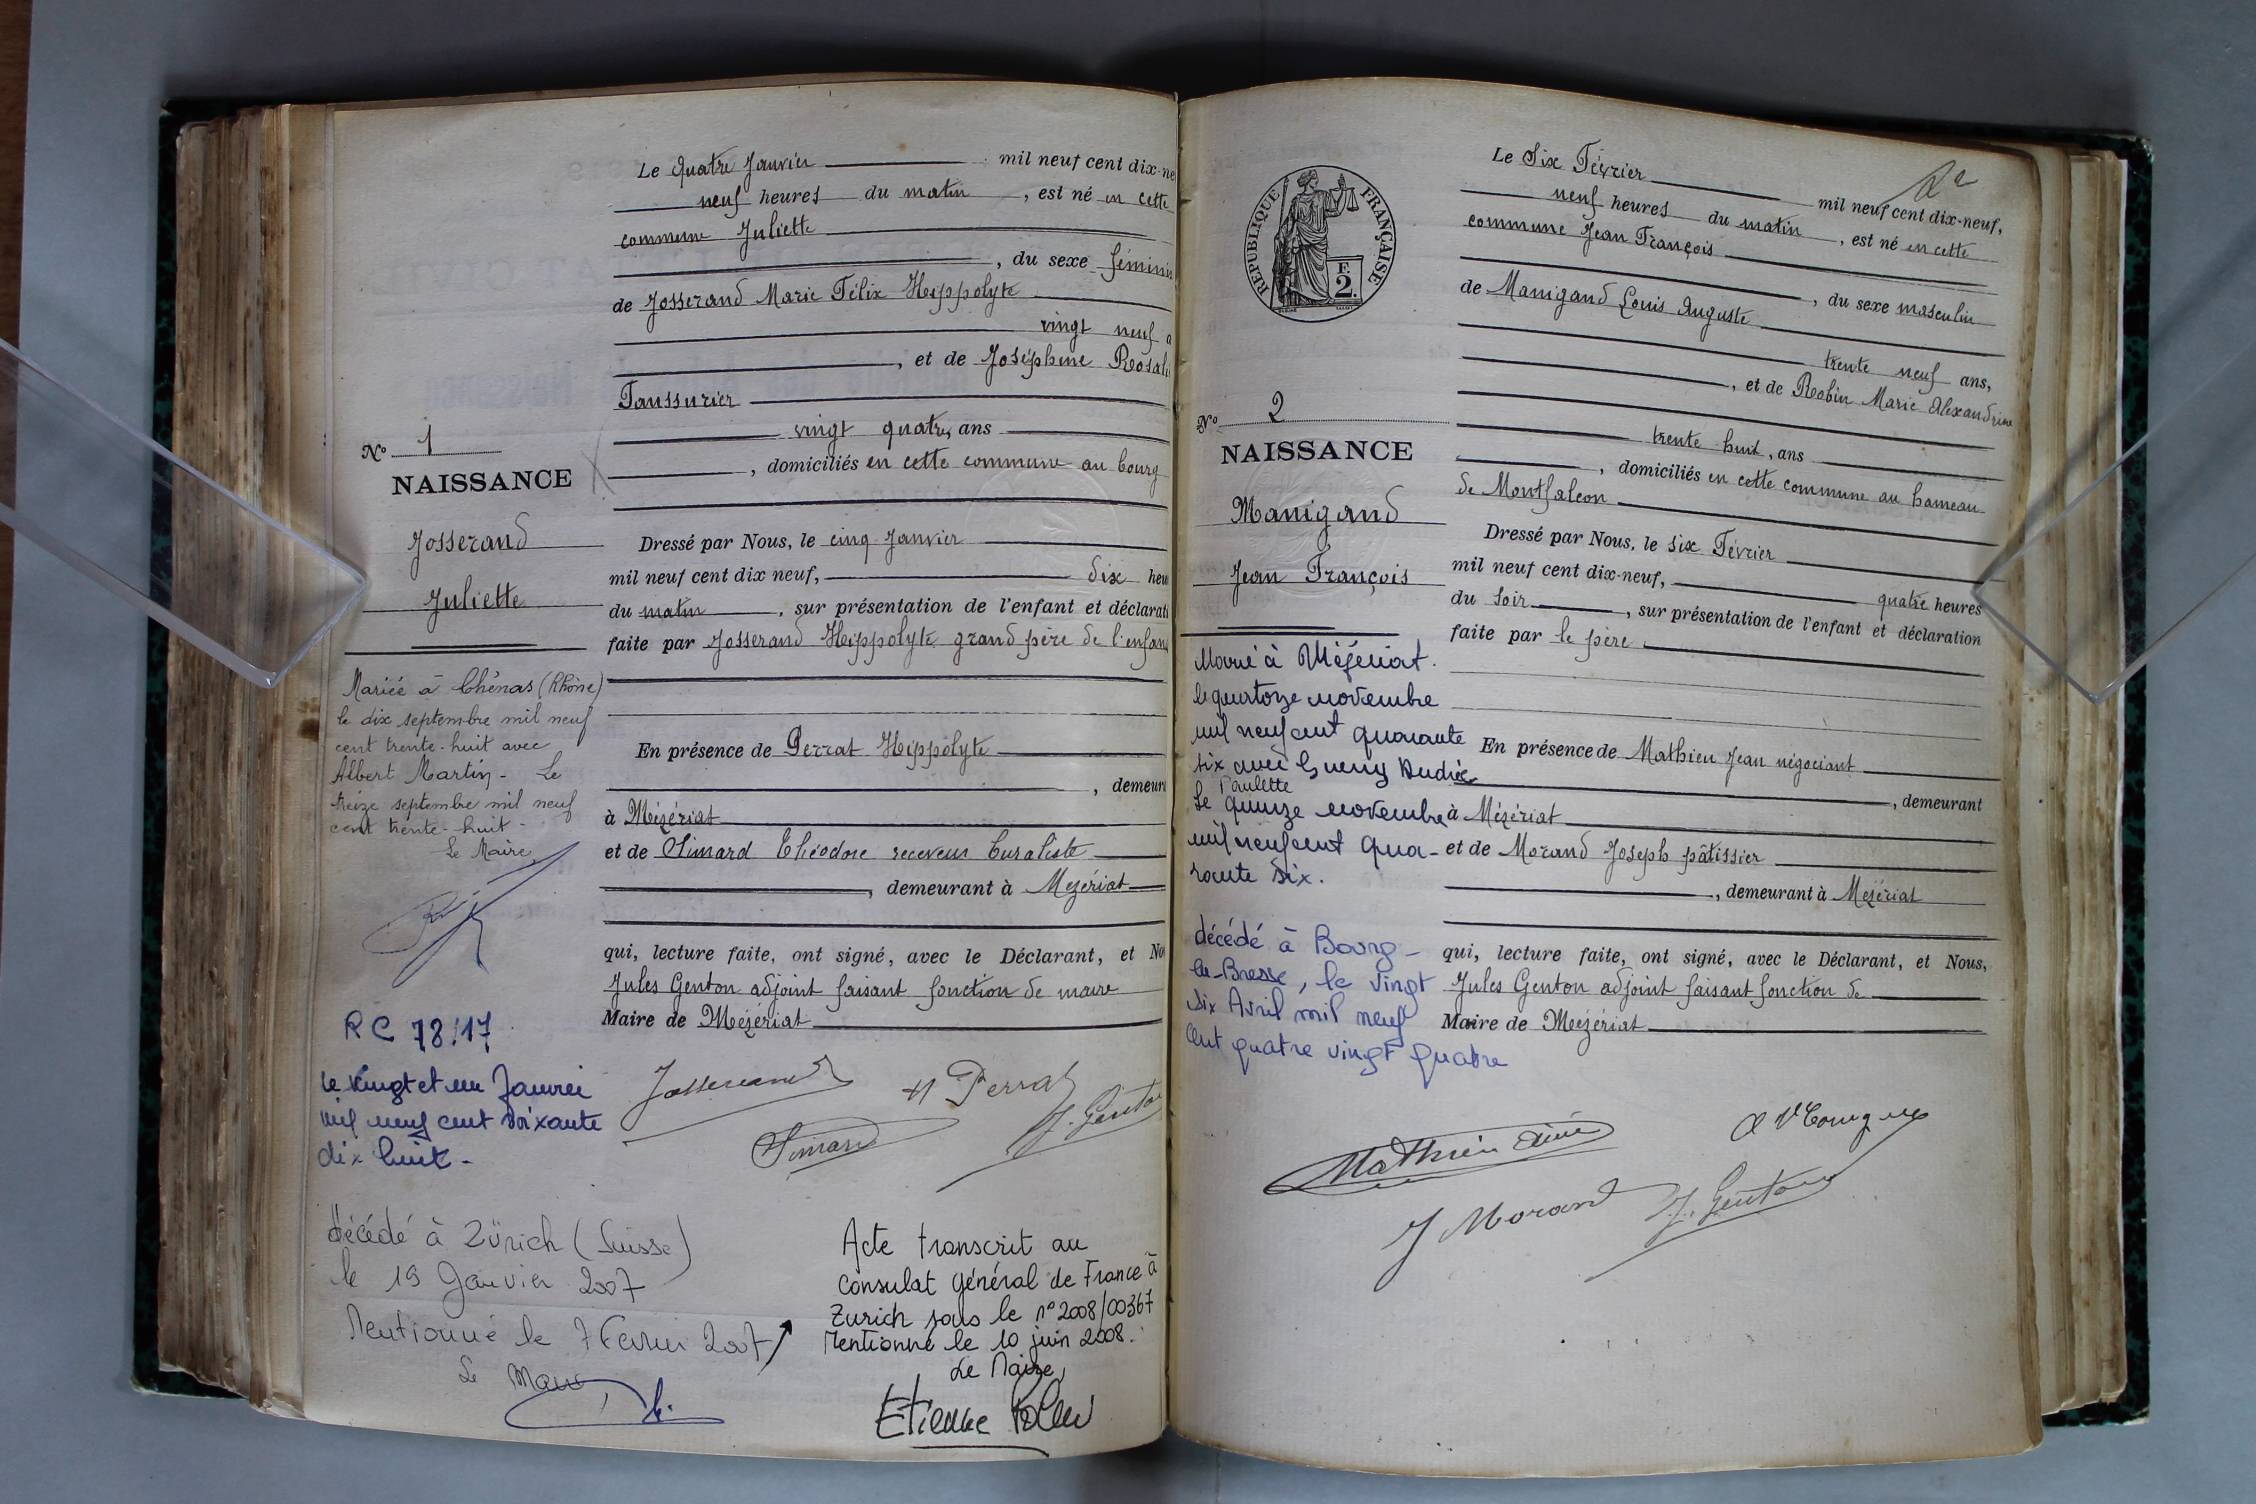 Le quatre Janvier mil neuf cent dix-ne
neuf heures du matin, est né en cette
commune Juliette
, du sexe féminin
de Josserand Marie Félix Hippolyte
vingt neuf a
, et de Joséphine Rosali
Faussurier
vingt quatre, ans
, domiciliés en cette commune au bourg
Nº 1
NAISSANCE
Josserand
Juliette
Dressé par Nous, le cinq Janvier
mil neuf cent dix neuf, dix heu
du matin, sur présentation de l'enfant et déclarati
faite par Josserand Hippolyte grand père de l'enfan
En présence de Perrat Hippolyte
, demeur
à Mézériat
et de Simard Théodore receveur buraliste
, demeurant à Mezériat
qui, lecture faite, ont signé, avec le Déclarant, et No
Jules Genton adjoint faisant fonction de maire
Maire de Mézériat
Josserand
H Perrat
Simard
J. Genton
Mariée à Chénas (Rhône)
le dix septembre mil neuf
cent trente-huit avec
Albert Martin - Le
treize septembre mil neuf
cent trente-huit -
Le Maire,
RC 78/17
le vingt et un Janvier
mil neuf cent soixante
dix huit -
décédé à Zürich (Suisse)
le 19 Janvier 2007
Mentionné le 7 Février 2007
Le Maire,
Acte transcrit au
consulat Général de France à
Zurich sous le nº 2008/00367
Mentionné le 10 juin 2008.
Le Maire,
Etienne
2e
RÉPUBLIQUE FRANÇAISE
F.
2.
Le Six Février mil neuf cent dix-neuf,
neuf heures du matin, est né en cette
commune Jean François
, du sexe masculin
de Manigand Louis Auguste
trente neuf ans,
, et de Robin Marie Alexandrine
trente huit, ans
, domiciliés en cette commune au hameau
de Montfalcon
Nº 2
NAISSANCE
Manigand
Jean François
Dressé par Nous, le six Février
mil neuf cent dix-neuf, quatre heures
du soir, sur présentation de l'enfant et déclaration
faite par le père
En présence de Mathieu Jean négociant
, demeurant
à Mézériat
et de Morand Joseph pâtissier
, demeurant à Mezériat
qui, lecture faite, ont signé, avec le Déclarant, et Nous,
Jules Genton adjoint faisant fonction de
Maire de Mézériat
Marié à Mézériat.
le quatorze novembre
mil neuf cent quarante
six avec
Paulette
Le quinze novembre
mil neuf cent qua-
rante six.
décédé à Bourg-
en-Bresse, le vingt
six Avril mil neuf
cent quatre vingt quatre
Mathieu
J Morand
J. Genton